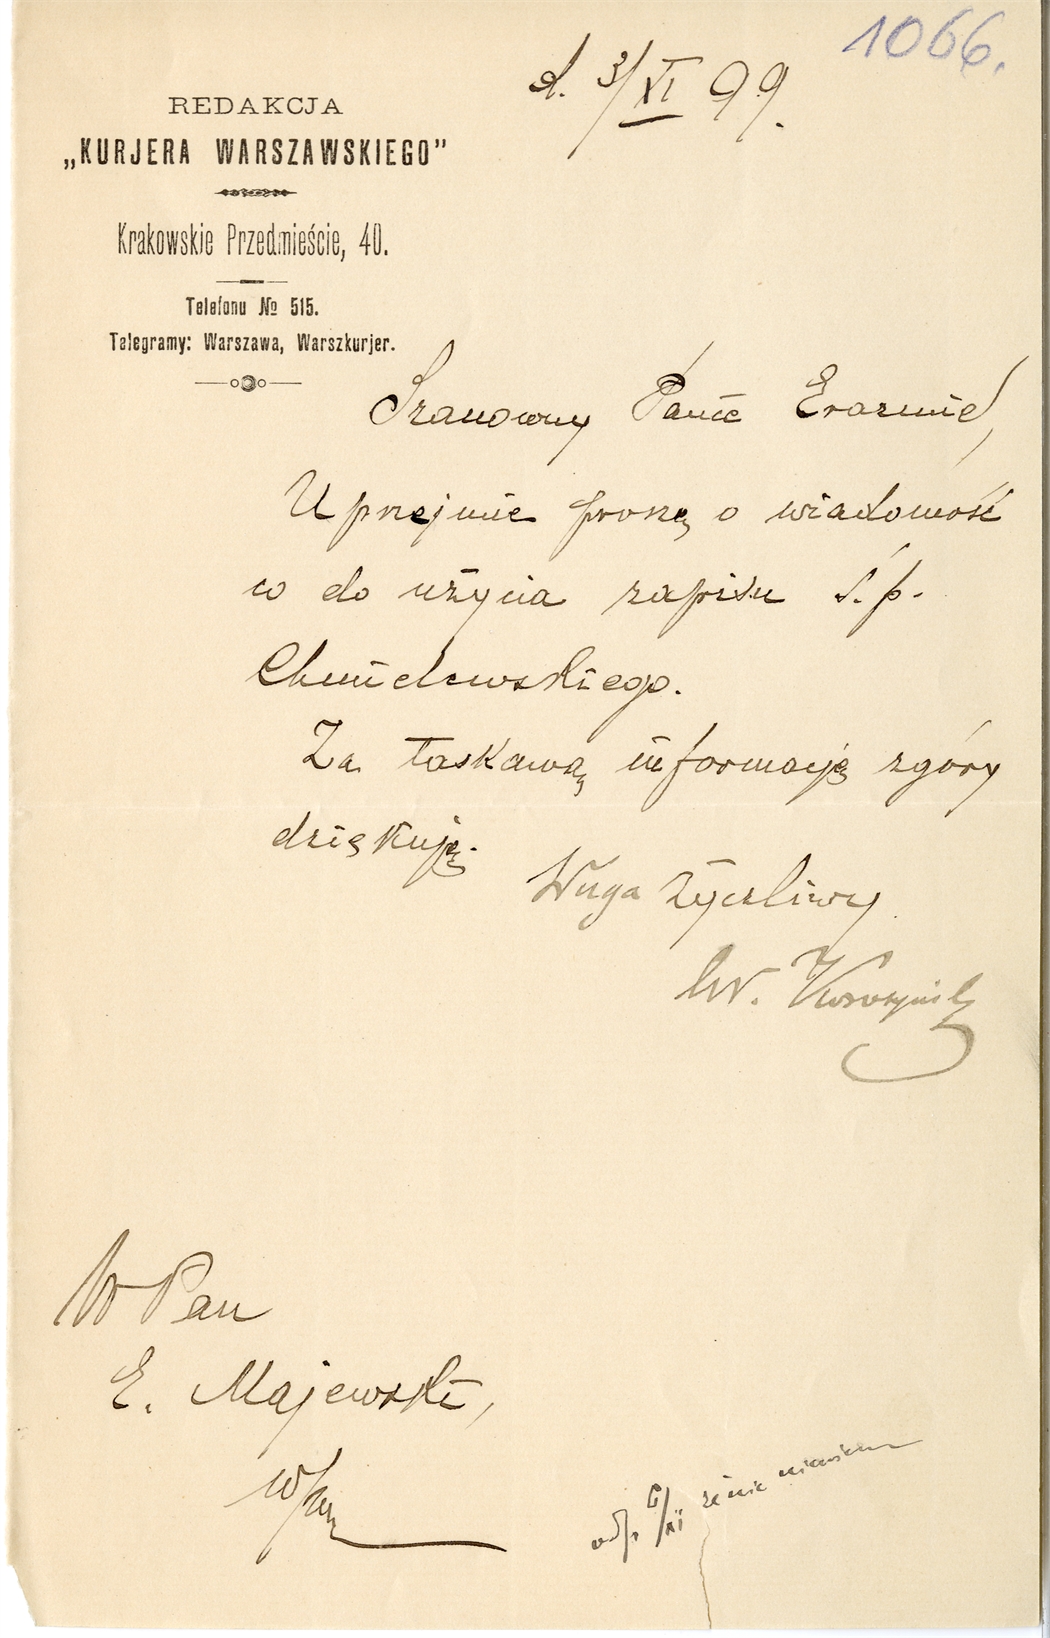 1066.
d. 3/XI 99.
REDAKCJA
„KURJERA WARSZAWSKIEGO”
Krakowskie Przedmieście, 40.
Telefonu № 515.
Telegramy: Warszawa, Warszkurjer.
Szanowny Panie Erazmie,
Uprzejmie proszę o wiadomość
co do użycia zapisu ś.p.
Chmielewskiego.
Za łaskawą informację zgóry
dziękuję.
Sługa życzliwy
W.
W Pan
E. Majewski,
odp. 6/XI że nie